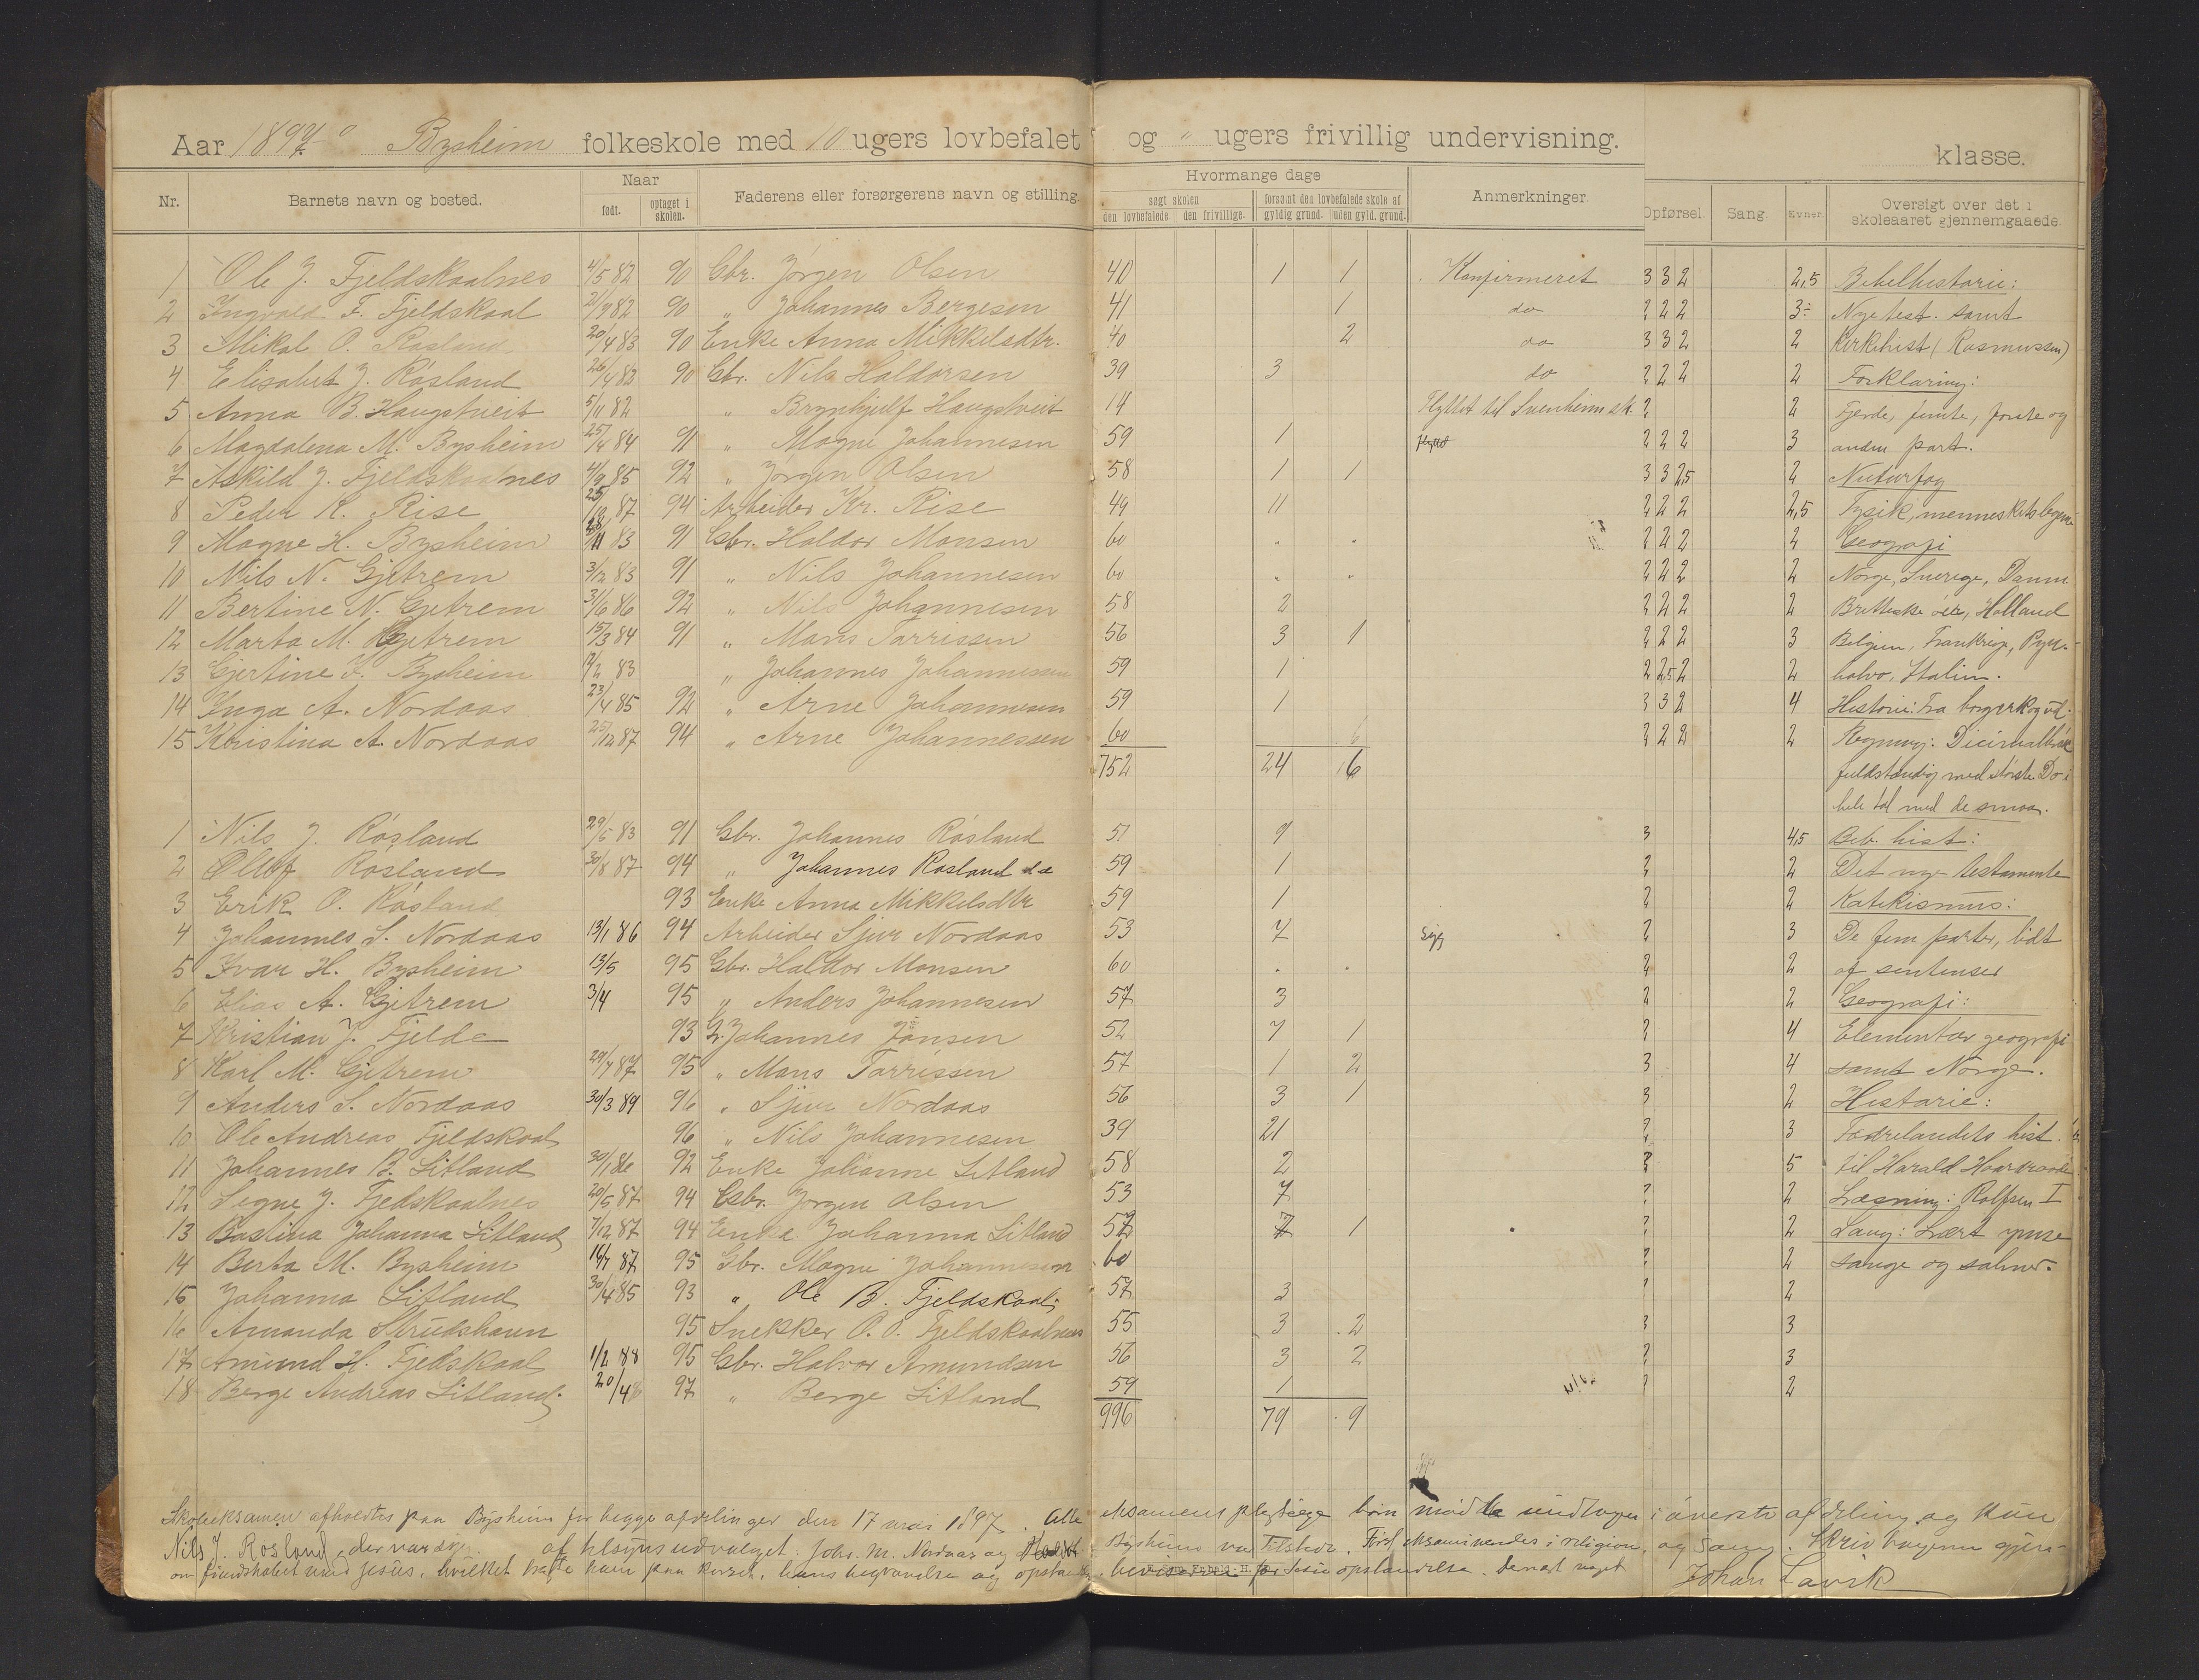 Aar 1897 Bysheim folkeskole med 10 ugers lovbefalet og " ugers frivillig undervisning. klasse.
Nr. Barnets navn og bosted. Naar født. optaget i skolen. Faderens eller forsørgerens navn og stilling. Hvormange dage søgt skolen den lovbefalede den frivillige. forsømt den lovbefalede skole af gyldig grund. uden gyld. grund. Anmerkninger. Opførsel. Sang. Evner. Oversigt over det i skoleaaret gjennemgaaede.
1 Ole J. Fjeldskaalnes 4/5 82 90 Gbr. Jørgen Olsen 40 1 1 Konfirmeret 3 3 2 2,5 Bibelhistorie:
2 Ingvald F. Fjeldskaal 21/9 82 90 " Johannes Bergesen 41 1 do 2 2 2 3÷ Nye test. samt
3 Mikal O. Røsland 20/4 83 90 Enke Anna Mikkelsdtr. 40 2 do 3 3 2 2 Kirkehist (Rasmussen)
4 Elisabet J. Røsland 26/4 82 90 Gbr. Nils Haldorsen 39 3 do 2 2 2 2 Forklaring:
5 Anna B. Haugstveit 5/11 82 " Brynhjulf Haugstveit 14 Flyttet til Svenheim sk. 2 2 Fjerde, femte, første og
6 Magdalena M. Bysheim 25/4 84 91 " Magne Johannesen 59 1 flyttet 2 2 2 3 anden part.
7 Askild J. Fjeldskaalnes 4/9 85 92 " Jørgen Olsen 58 1 1 3 3 2,5 2 Naturfag
8 Peder K. Rise 25/10 87 94 Arbeider Kr. Rise 49 11 2 2 2 2,5 Fysik, menneskets legem
9 Magne H. Bysheim 28/11 83 91 Gbr. Haldor Monsen 60 " " 2 2 2 2 Geografi
10 Nils N. Gjetrem 3/12 83 91 " Nils Johannesen 60 " " 2 2 2 2 Norge, Sverige, Danm
11 Bertine N. Gjetrem 3/6 86 92 " Nils Johannesen 58 2 2 2 2 2 Brittiske øer, Holland
12 Marta M. Gjetrem 15/3 84 91 " Mans Tarrissen 56 3 1 2 2 2 3 Belgien, Frankrige, Pyr.
13 Gjertine J. Bysheim 83 " Johannes Johannesen 59 1 2 2,5 2 2 halvø, Italien.
14 Inga A. Nordaas 23/4 85 92 " Arne Johannesen 59 1 3 3 2 4 Historie: Fra borgerkog ud.
15 Kristina A. Nordaas 25/12 87 94 " Arne Johannessen 60 6 2 2 2 2 Regning: Decimalbrøk
752 24 16 fuldstændig med største Do i
hele tal med de smaa.
1 Nils J. Røsland 29/5 83 91 Gbr. Johannes Røsland 51 9 3 4,5 Bib. hist:
2 Oluf Røsland 30/8 87 94 " Johannes Røsland 59 1 2 2 Det nye testamente
3 Erik O. Røsland 93 Enke Anna Mikkelsdtr 59 1 2 2 Katekismus:
4 Johannes S. Nordaas 13/1 86 94 Arbeider Sjur Nordaas 53 7 syg 2 3 De fem parter, lidt
5 Ivar H. Bysheim 13/5 95 Gbr. Haldor Monsen 60 " " 2 2 af sentenser
6 Elias A. Gjetrem 3/4 95 " Anders Johannesen 57 3 2 2 Geografi:
7 Kristian J. Fjelde 93 Johannes Jonsen 52 7 1 2 4 Elementær geografi
8 Karl M. Gjetrem 29/7 87 95 " Mans Tarrissen 57 1 2 3 4 samt Norge.
9 Anders S. Nordaas 30/3 89 96 " Sjur Nordaas 56 3 1 3 2 Historie:
10 Ole Andreas Fjeldskaal 96 " Nils Johannesen 39 21 2 3 Fædrelandets hist.
11 Johannes B. Litland 30/1 86 92 Enke Johanne Litland 58 2 3 5 til Harald Haarraade
12 Segne J. Fjedskaalnes 20/5 87 94 Gbr. Jørgen Olsen 53 7 2 2 Læsning: Rolfsen I
13 Bastina Johanna Litland 7/12 87 94 Enke Johanna Litland 52 7 1 2 2 Sang: Lært ymse
14 Berta M. Bysheim 16/7 87 95 Gbr. Magne Johannesen 60 2 2 sange og salmer.
15 Johanna Litland 30/4 85 93 " Ole B. Fjeldskaal 57 3 2 2
16 Amanda Strudshavn 95 Snekker O. O. Fjeldskaalnes 55 3 2 3 3
17 Amund H. Fjedskaal 1/2 88 95 Gbr. Halvor Amundsen 56 3 2 2 3
18 Berge Andreas Litland 20/4 97 " Berge Litland 59 1 2 2
996 79 9
Skoleeksamen afholdtes paa Bysheim for begge afdelinger den 17 mai 1897. Alle eksamenspligtige børn mødte undtagen i øverste afdeling og kun
Nils J. Røsland, der var syg. af tilsynsudvalget Johs. M. Nordaas og Bysheim var tilstede. Først eksaminerdes i religion, og sang. Skrivbøgerne gjen-
om fiendskabet mod Jesus, hvilket bragte ham paa korset, hans begravelse og opstandelse, beviserne for Jesu opstandelse. Dernæst noget Johan Lavik